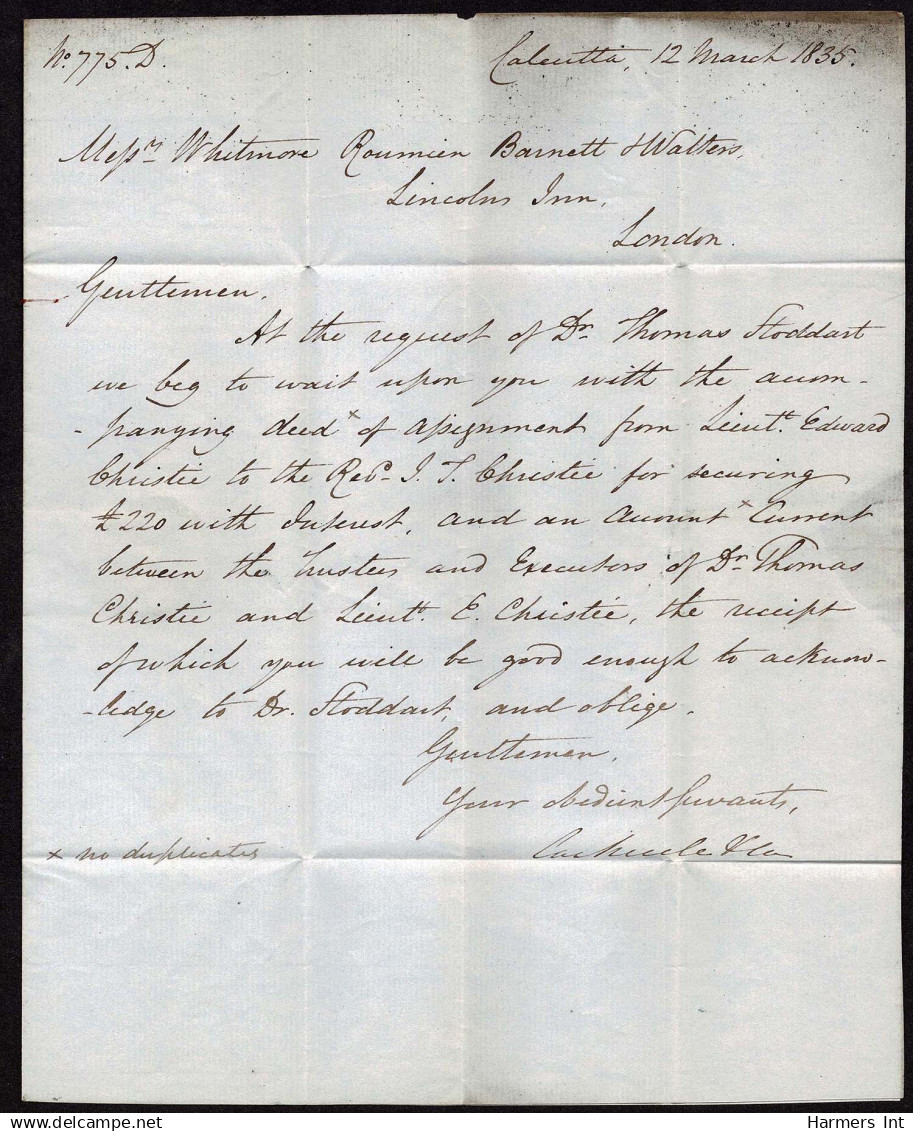 No. 775. D.
Calcutta, 12 March 1835.
Messrs Whitmore Roumieu Barnett & Walters,
Lincolns Inn,
London.
Gentlemen,
At the request of Dr. Thomas Stoddart
we beg to wait upon you with the accom-
-panying deed x of assignment from Lieutt. Edward
Christie to the Revd. J. T. Christie for securing
£220 with Interest, and an Account x Current
between the Trustees and Executors of Dr. Thomas
Christie and Lieutt. E. Christie, the receipt
of which you will be good enough to acknow-
-ledge to Dr. Stoddart, and oblige.
Gentlemen,
Your obedient Servants,
& Co
x no duplicates
delcampe.net
Harmers Int